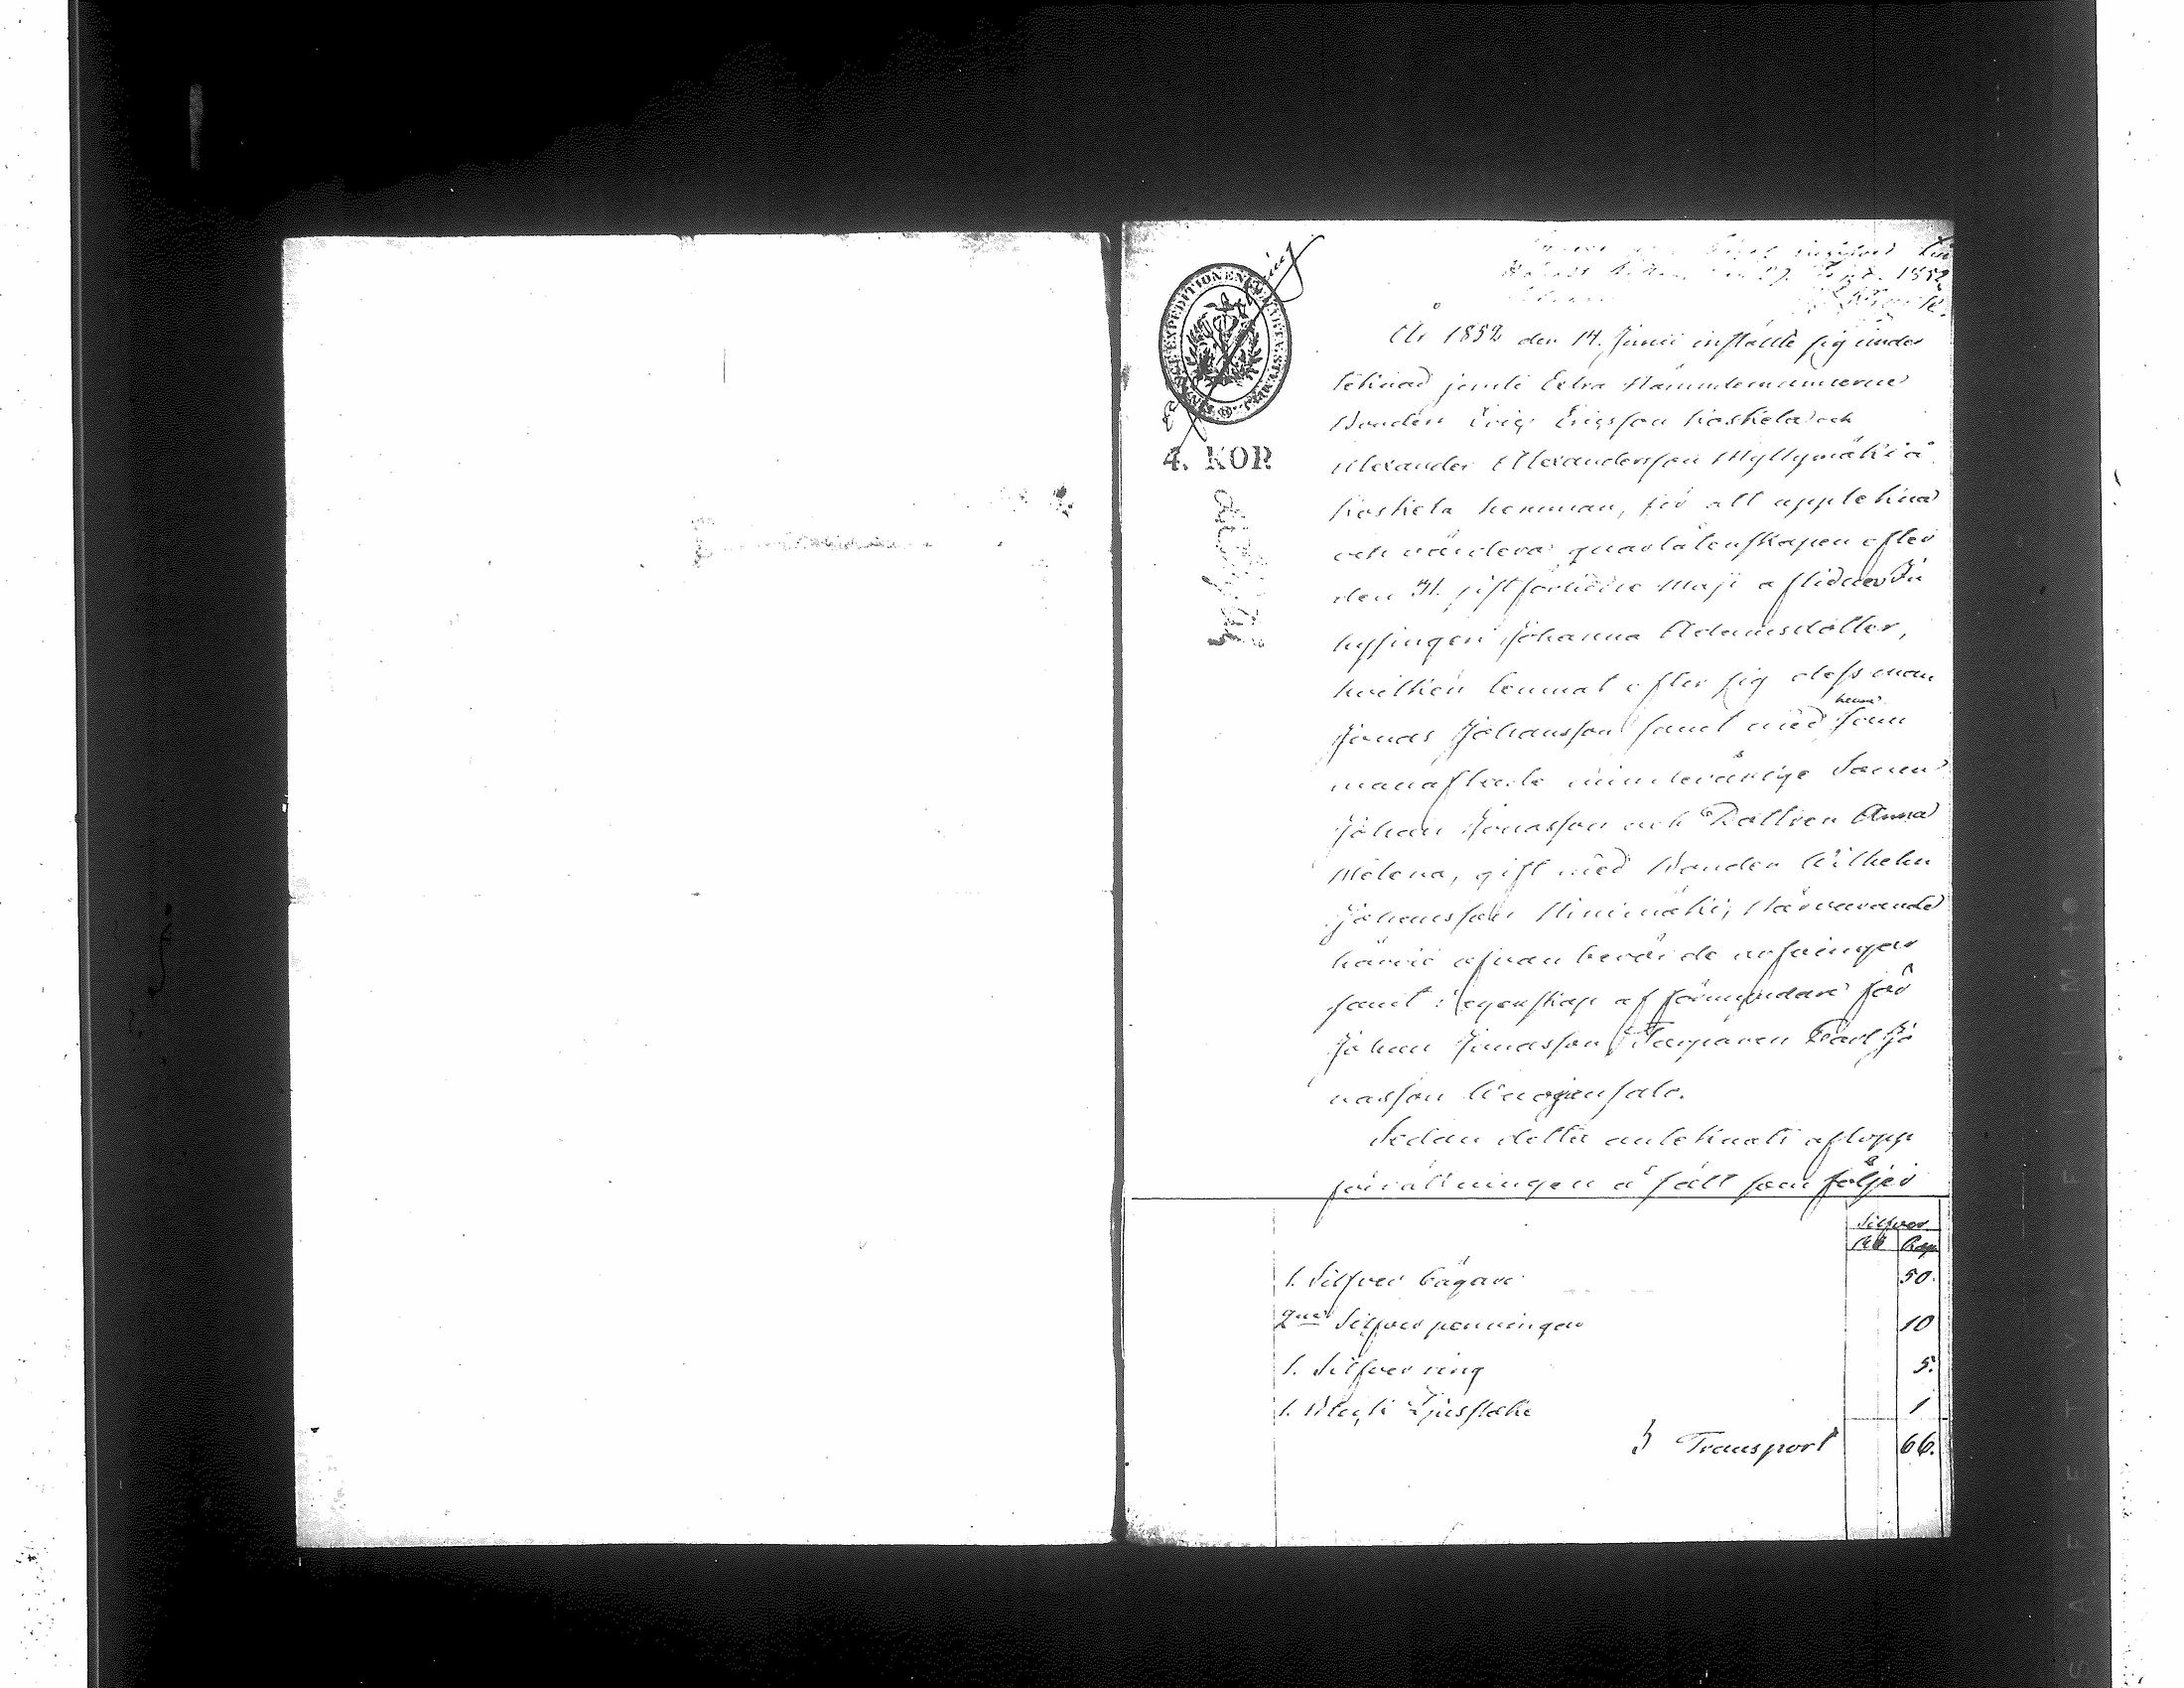 1852
År 1852 den 14. Junii inställde sig under
teknad jemte Extra Nämndemännerne
Bonden Eric Ericsson Koskela och
Alexander Alexandersson Myllymäki å
Koskela hemman, för att upptekna
och värdera quarlåtenskapen efter
den 31. sistförlidne Maji aflidne In
hysingen Johanna Adamsdotter,
hvilken lemnat efter sig dess man
Jonas Johansson samt med honom
manaflade minderårige Sonen
Johan Jonasson och Dottren Anna
Helena, gift med Bonden Wilhelm
Johansson Hinimäki, Närvarande
härvid ofvanberörde arfvingar
samt i egenskap af förmyndare för
Johan Jonasson Torparen Carl Jo
nasson
Sedan detta anteknats aflopp
förrättningen å sätt som följer
Silfver
Rub Kop
1. Silfver bägare 50.
2ne Silfver penningar 10
1. Silfver ring 5.
1. Ljusstake 1
Transport 66.
4. KOP